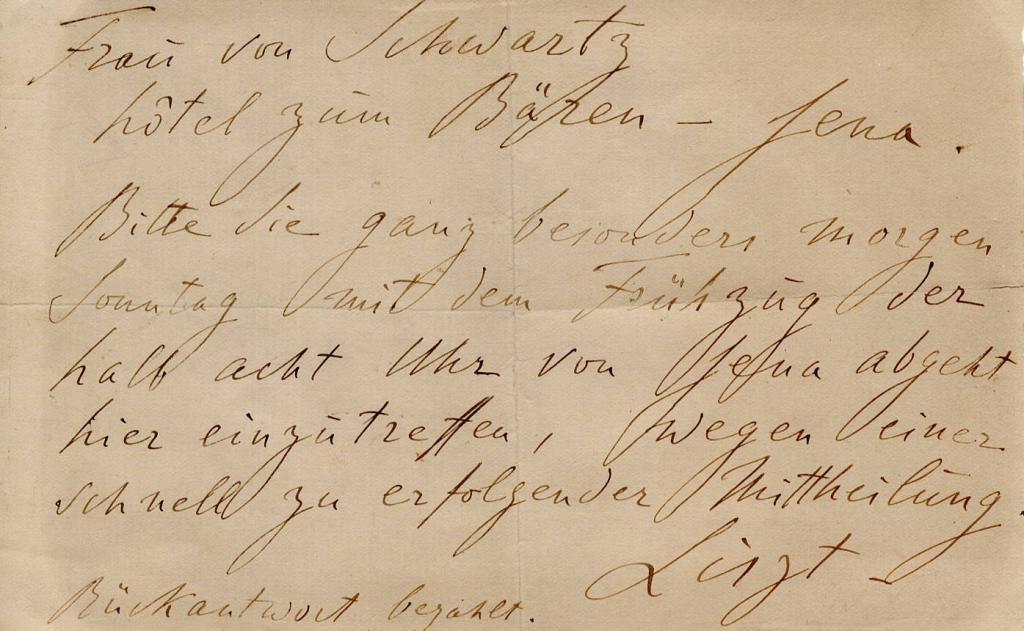 Frau von Schwartz
hôtel zum Bären – Jena.
Bitte Sie ganz besonders morgen
Sonntag mit dem Frühzug der
halb acht Uhr von Jena abgeht
hier einzutreffen, wegen einer
schnell zu erfolgender Mittheilung.
Liszt –
Rückantwort bezahlt.